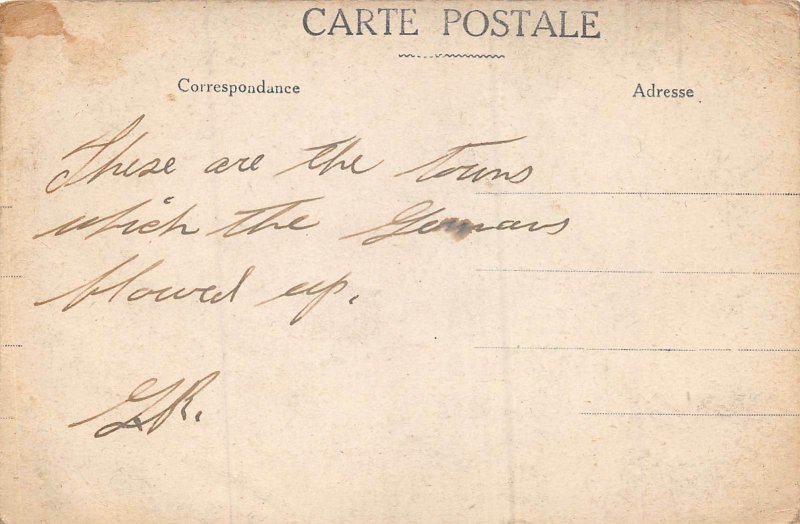 CARTE POSTALE
Correspondance
Adresse
These are the towns
which the Germans
blowed up.